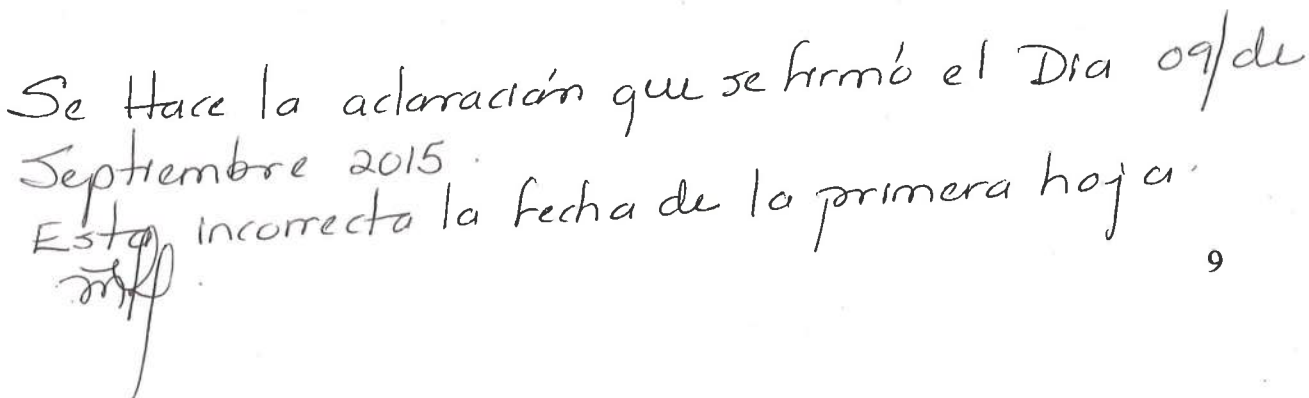 Se Hace la aclaración que se firmó el Dia 09/de
Septiembre 2015.
Esta incorrecta la fecha de la primera hoja.
9